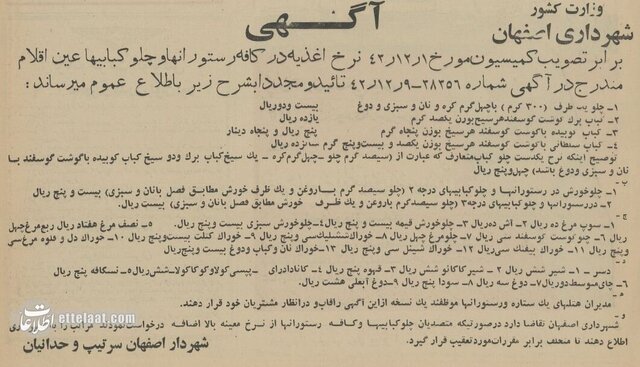 وزارت کشور
شهرداری اصفهان
آگهی
برابر تصویب کمیسیون مورخ ۴۲٫۱۲٫۱ نرخ اغذیه در کافه رستورانها و چلوکبابیها عین اقلام
مندرج در آگهی شماره ۲۸۲۵۶-۴۲٫۱۲٫۹ تائید و مجددا بشرح زیر باطلاع عموم میرساند:
۱- چلو یک ظرف (۳۰۰ گرم) با چهل گرم کره و نان و سبزی و دوغ بیست و دو ریال
۲- کباب برگ گوشت گوسفند هر سیخ بوزن یکصد گرم یازده ریال
۳- کباب کوبیده با گوشت گوسفند هر سیخ بوزن پنجاه گرم پنج ریال و پنجاه دینار
۴- کباب سلطانی با گوشت گوسفند هر سیخ بوزن یکصد و بیست و پنج گرم شانزده ریال
توضیح اینکه نرخ یکدست چلو کباب متعارف که عبارت از (سیصد گرم چلو - چهل گرم کره - یک سیخ کباب برگ و دو سیخ کباب کوبیده با گوشت گوسفند با
نان و سبزی و دوغ باشد) چهل و پنج ریال
ب-
۱- چلوخورش در رستورانها و چلوکبابیهای درجه ۲ (چلو سیصد گرم با روغن و یک ظرف خورش مطابق فصل با نان و سبزی) بیست و پنج ریال
۲- در رستورانها و چلوکبابیهای درجه ۳ (چلو سیصد گرم با روغن و یک ظرف خورش مطابق فصل با نان و سبزی) بیست ریال.
ج-
۱- سوپ مرغ ده ریال ۲- آش ده ریال ۳- چلوخورش قیمه بیست و پنج ریال ۴- چلوخورش سبزی بیست و پنج ریال ۵- نصف مرغ هفتاد ریال ربع مرغ چهل
ریال ۶- چلو گوشت گوسفند سی ریال ۷- چلو مرغ چهل ریال ۸- خوراک ششلیک سی و پنج ریال ۹- خوراک کتلت بیست و پنج ریال ۱۰- خوراک دل و قلوه مرغ سی
و پنج ریال ۱۱- خوراک بیفتک سی ریال ۱۲- خوراک شنیسل سی و پنج ریال ۱۳- خوراک نان و کباب و دوغ بیست و پنج ریال
د-
دسر - ۱- شیر شش ریال ۲- شیر کاکائو شش ریال ۳- قهوه پنج ریال ۴- کانادادرای - پپسی کولا و کوکاکولا شش ریال ۵- نسکافه پنج ریال
۶- چای متوسط دو ریال ۷- دوغ سه ریال ۸- سودا پنج ریال ۹- دوغ آبعلی هشت ریال.
ه-
مدیران هتلهای یک ستاره و رستورانها موظفند یک نسخه از این آگهی را قاب و در انظار مشتریان خود قرار دهند.
و-
شهرداری اصفهان تقاضا دارد در صورتیکه متصدیان چلوکبابیها و کافه رستورانها از نرخ معینه بالا اضافه درخواست نمودند مراتب را
دهند تا متخلف برابر مقررات مورد تعقیب قرار گیرد.
شهردار اصفهان سرتیپ وحدانیان
اطلاعات
ettelaat.com